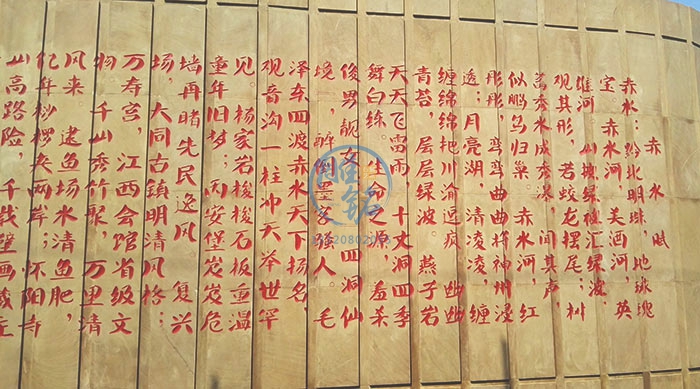 赤水赋
赤水:黔北明珠,地球瑰
宝。赤水河,美酒河,英
雄河。山拥绿楼汇绿波,
观其形,若蛟龙摆尾;树
秀水成秀溪,闻其声,
似鹏鸟归巢。赤水河,红
彤彤,弯弯曲曲将神州漫
透;月亮湖,清凌凌,缠
缠绵绵把川渝逗疯。幽幽
青苔,层层绿波。燕子岩
天天飞雷雨,十丈洞四季
舞白练。生命之源,羞杀
俊男靓女。四洞仙
境,醉倒墨客骚人。毛
泽东四渡赤水天下扬名,
观音沟一柱冲天举世罕
见。杨家岩梭梭石板重温
童年旧梦;丙安堡岌岌危
墙再睹先民逸风。复兴
场,大同古镇明清风格;
万寿宫,江西会馆省级文
物。千山秀竹聚,万里清
风来。逮鱼场水清鱼肥,
亿年桫椤夹两岸;怀阳寺
山高路险,千壁画藏